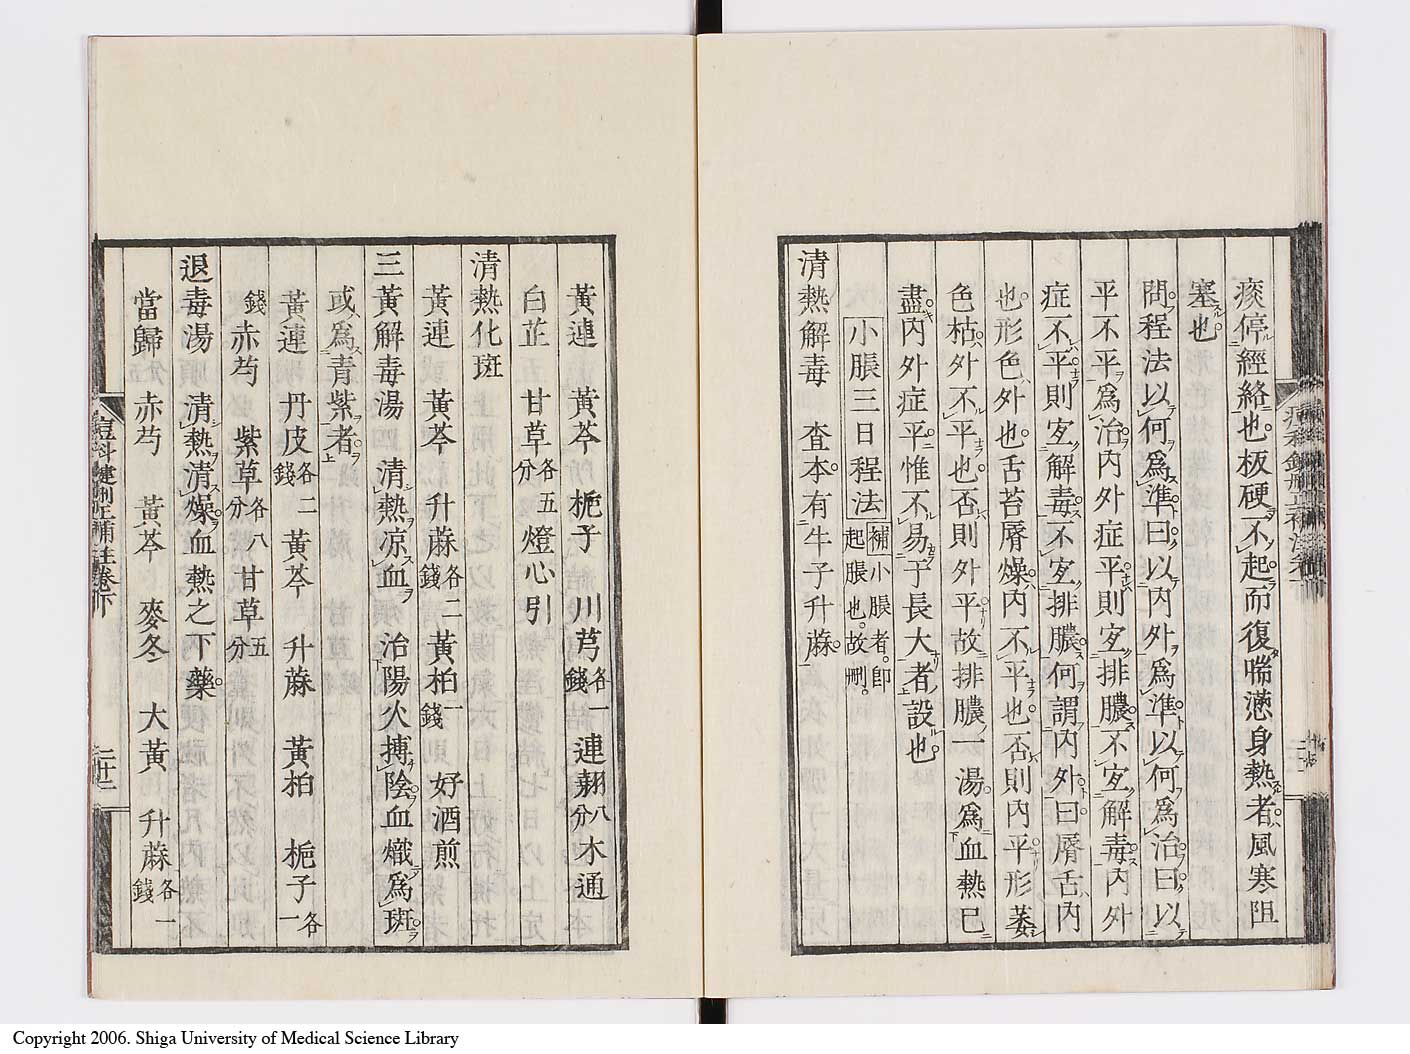 痰停經絡也板硬不起而復喘懣身熱者風寒阻
塞也
問程法以何爲準曰以内外爲準以何爲治曰以
平不平爲治内外症平則宜排膿不宜解毒内外
症不平則宜解毒不宜排膿何謂内外曰唇舌内
也形色外也舌苔唇燥内不平也否則内平形萎
色枯外不平也否則外平故排膿一湯爲血熱已
盡内外症平惟不易于長大者設也
小脹三日程法 補小脹者即起脹也故刪
清熱解毒 査本有牛子升蔴
黃連 黃芩 梔子 川芎各一錢 連翹八分 木通
白芷 甘草各五分 燈心引
清熱化斑
黃連 黃芩 升蔴各二錢 黃柏一錢 好酒煎
三黃解毒湯 清熱凉血 治陽火搏陰血熾爲斑
或爲青紫者
黃連 丹皮各二錢 黃芩 升蔴 黃柏 梔子各一
錢 赤芍 紫草各八分 甘草五分
退毒湯 清熱清燥血熱之下藥
當歸 赤芍 黃芩 麥冬 大黃 升蔴各一錢
痘科鍵刪正補註卷下 二十二
Copyright 2006. Shiga University of Medical Science Library